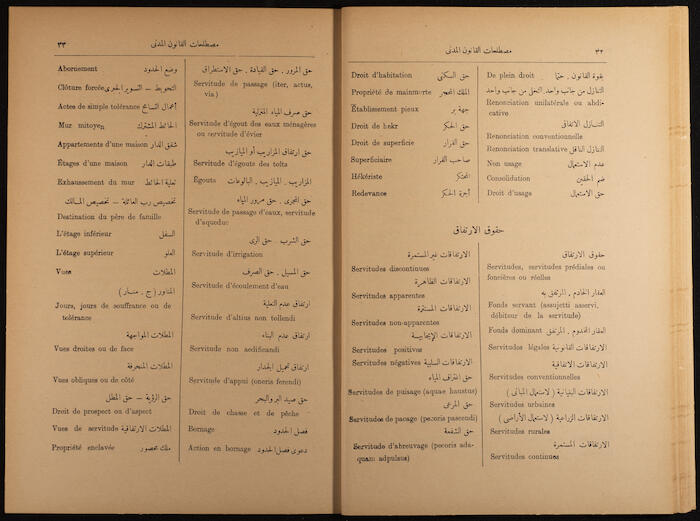 ٣٢
مصطلحات القانون المدنى
De plein droit بقوة القانون . حتماً
التنازل من جانب واحد . التخلى من جانب واحد
Renonciation unilatérale ou abdi-
cative
التنازل الاتفاقى
Renonciation conventionnelle
Renonciation translative التنازل الناقل
Non usage عدم الاستعمال
Consolidation ضم الحقين
Droit d'usage حق الاستعمال
Droit d'habitation حق السكنى
Propriété de mainmorte الملك المحجر
Établissement pieux جهة بر
Droit de hekr حق الحكر
Droit de superficie حق القرار
Superficiaire صاحب القرار
Hékériste المحتكر
Redevance أجرة الحكر
حقوق الارتفاق
حقوق الارتفاق
Servitudes, servitudes prédiales ou
foncières ou réelles
العقار الخادم . المرتفق به
Fonds servant (assujetti asservi,
débiteur de la servitude)
Fonds dominant العقار المخدوم . المرتفق
Servitudes légales الارتفاقات القانونية
الارتفاقات الاتفاقية
Servitudes conventionnelles
الارتفاقات البنيانية (لاستعمال المبانى)
Servitudes urbaines
الارتفاقات الزراعية (لاستعمال الأراضى)
Servitudes rurales
الارتفاقات المستمرة
Servitudes continues
الارتفاقات غير المستمرة
Servitudes discontinues
الارتفاقات الظاهرة
Servitudes apparentes
الارتفاقات المستترة
Servitudes non-apparentes
الارتفاقات الإيجابية
Servitudes positives
Servitudes négatives الارتفاقات السلبية
حق اغتراف المياه
Servitudes de puisage (aquae haustus)
حق المرعى
Servitudes de pacage (pecoris pascendi)
حق الشفعة
Servitude d'abreuvage (pecoris ada-
quam adpulsus)
٣٣
مصطلحات القانون المدنى
حق المرور . حق القيادة . حق الاستطراق
Servitude de passage (iter, actus,
via)
حق صرف المياه المنزلية
Servitude d'égout des eaux ménagères
ou servitude d'évier
حق ارتفاق المزاريب أو الميازيب
Servitude d'égouts des toîts
Égouts المزاريب . الميازيب . البالوعات
حق المجرى . حق مرور المياه
Servitude de passage d'eaux, servitude
d'aqueduc
حق الشرب - حق الرى
Servitude d'irrigation
حق المسيل . حق الصرف
Servitude d'écoulement d'eau
ارتفاق عدم التعلية
Servitude d'altius non tollendi
ارتفاق عدم البناء
Servitude non aedificandi
ارتفاق تحميل الجدار
Servitude d'appui (oneris ferendi)
حق صيد البر والبحر
Droit de chasse et de pêche
Bornage فصل الحدود
Action en bornage دعوى فصل الحدود
Abornement وضع الحدود
Clôture forcée التحويط - التسوير الجبرى
Actes de simple tolérance أعمال التسامح
Mur mitoyen الحائط المشترك
Appartements d'une maison شقق الدار
Étages d'une maison طبقات الدار
Exhaussement du mur تعلية الحائط
تخصيص رب العائلة - تخصيص المالك
Destination du père de famille
L'étage inférieur السفل
L'étage supérieur العلو
Vues المطلات
المناور (ج . منـار)
Jours, jours de souffrance ou de
tolérance
المطلات المواجهة
Vues droites ou de face
المطلات المنحرفة
Vues obliques ou de côté
حق الرؤية - حق المطل
Droit de prospect ou d'aspect
Vues de servitude المطلات الارتفاقية
Propriété enclavée ملك محصور